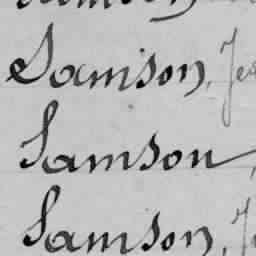 Samson, Je
Samson,
Samson, J